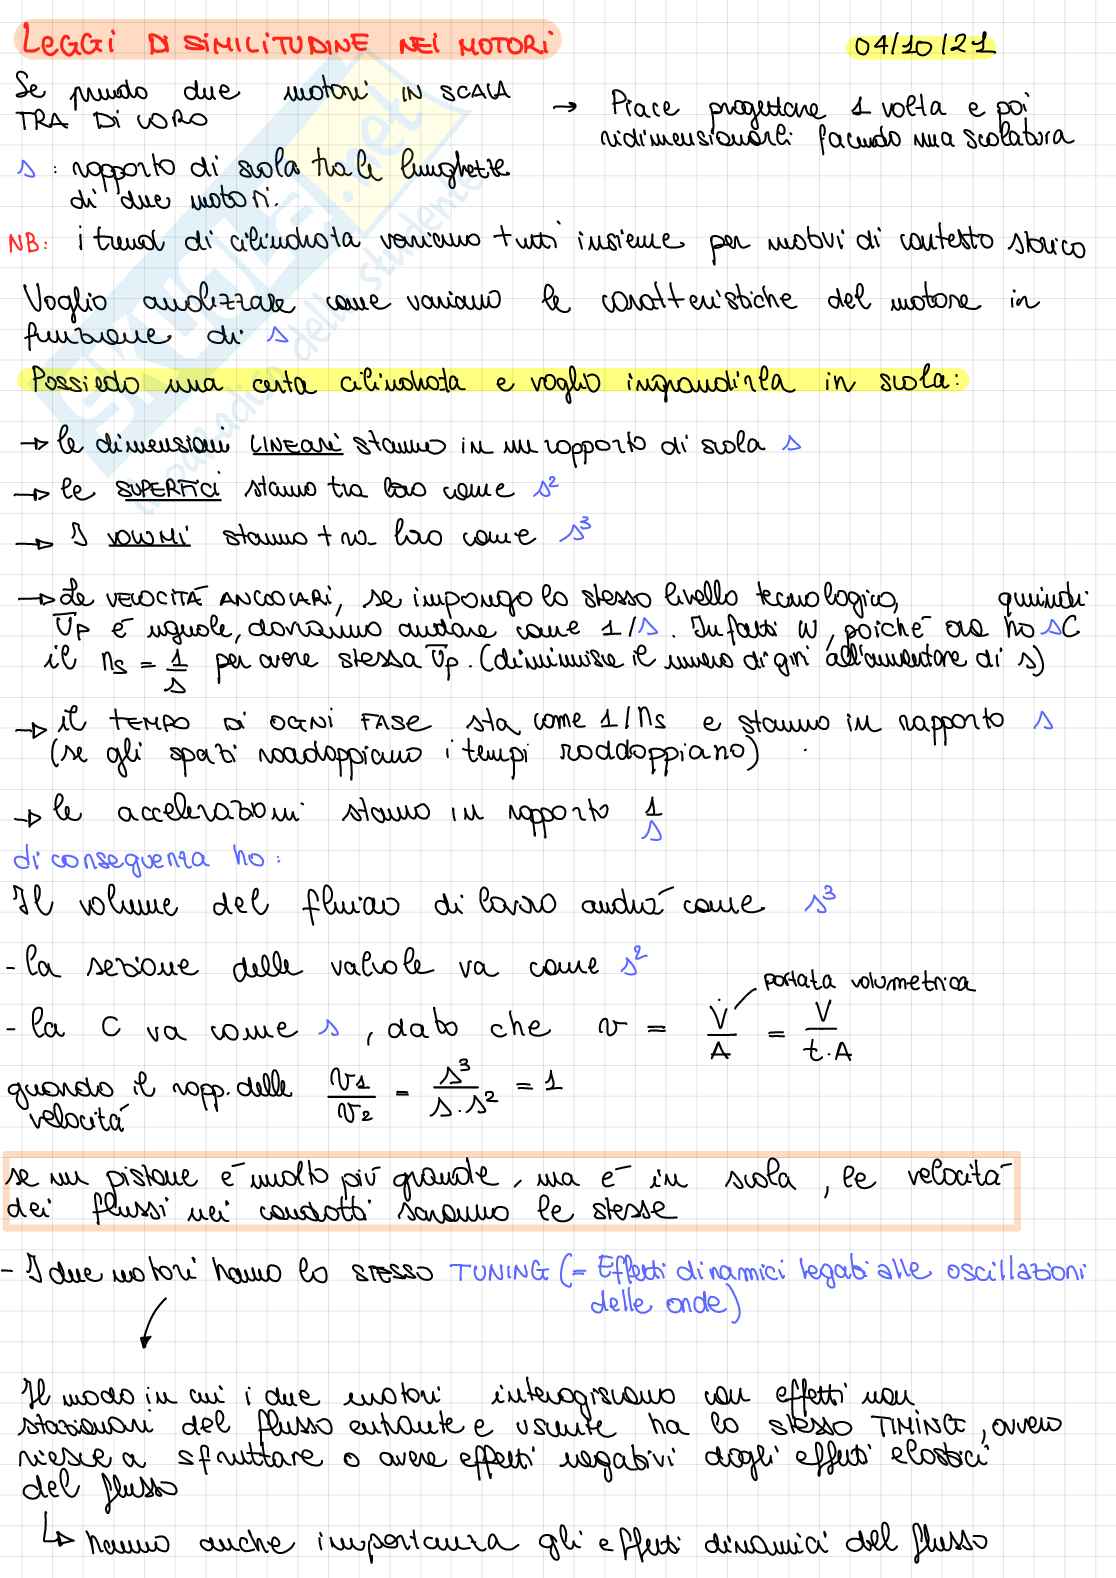 LEGGI DI SIMILITUDINE NEI MOTORI
04/10/21
Se prendo due motori IN SCALA
TRA DI LORO
→ Piace progettare 1 volta e poi
ridimensionarli facendo una scalatura
s : rapporto di scala tra le lunghezze
di due motori.
NB: i trend di cilindrata variano tutti insieme per motivi di contesto storico
Voglio analizzare come variano le caratteristiche del motore in
funzione di s
Possiedo una certa cilindrata e voglio ingrandirla in scala:
→ le dimensioni LINEARI stanno in un rapporto di scala s
→ le SUPERFICI stanno tra loro come s²
→ I VOLUMI stanno tra loro come s³
→ Le VELOCITÀ ANGOLARI, se impongo lo stesso livello tecnologico, quindi
Up è uguale, dovranno andare come 1/s. Infatti W, poiché ora ho sC
il ns = 1/s per avere stessa Up. (diminuisce il numero di giri all'aumentare di s)
→ il TEMPO DI OGNI FASE sta come 1/ns e stanno in rapporto s
(se gli spazi raddoppiano i tempi raddoppiano)
→ le accelerazioni stanno in rapporto 1/s
di conseguenza ho:
Il volume del fluido di lavoro andrà come s³
- la sezione delle valvole va come s²
portata volumetrica
- la C va come s, dato che v = V̇/A = V/t·A
quando il rapp. delle v1/v2 = s³/s·s² = 1
velocità
se un pistone è molto più grande, ma è in scala, le velocità
dei flussi nei condotti saranno le stesse
- I due motori hanno lo STESSO TUNING (= Effetti dinamici legati alle oscillazioni
delle onde)
Il modo in cui i due motori interagiscono con effetti non
stazionari del flusso entrante e uscente ha lo stesso TIMING, ovvero
riesce a sfruttare o avere effetti negativi dagli effetti elastici
del flusso
↳ hanno anche importanza gli effetti dinamici del flusso
SKUOLA.net